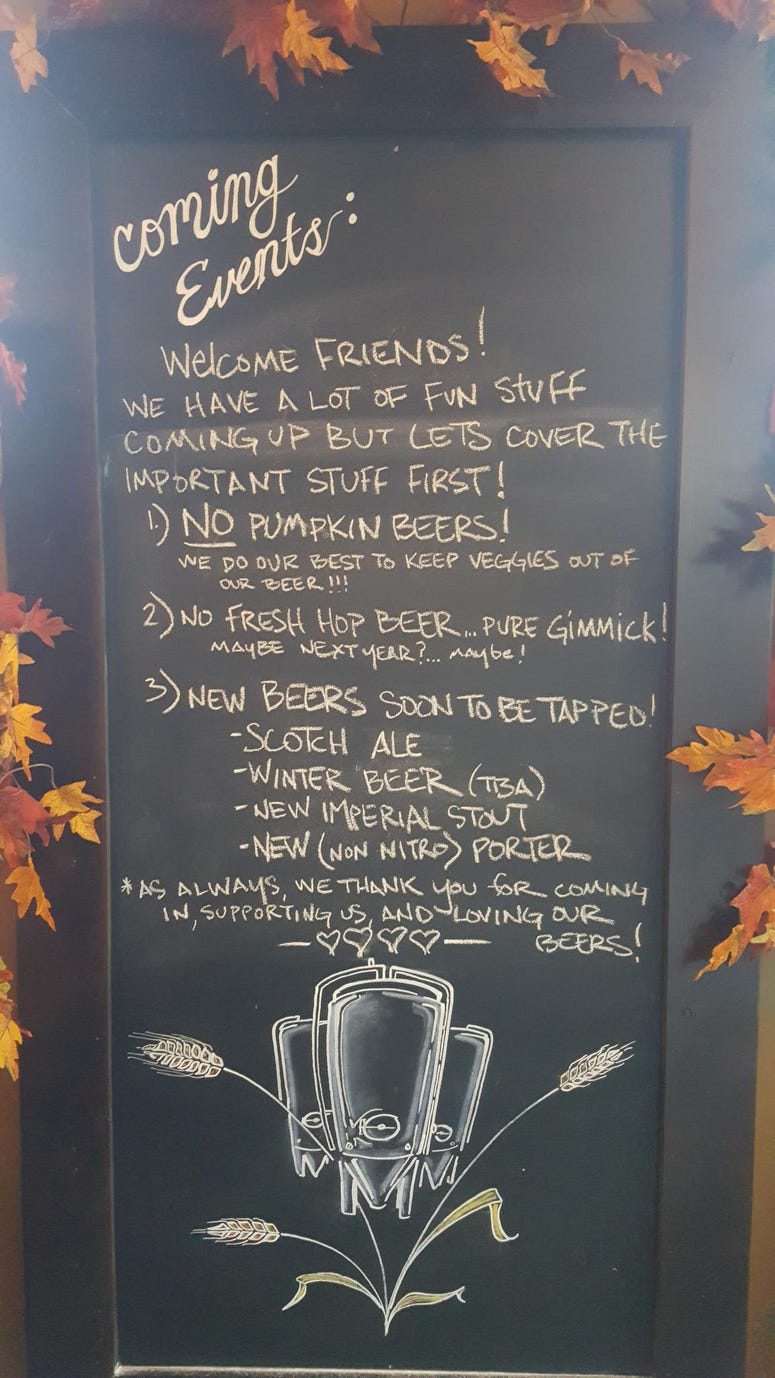 Coming
Events:
Welcome FRIENDS!
WE HAVE A LOT OF FUN STUFF
COMING UP BUT LETS COVER THE
IMPORTANT STUFF FIRST!
1.) NO PUMPKIN BEERS!
WE DO OUR BEST TO KEEP VEGGIES OUT OF
OUR BEER!!!
2) NO FRESH HOP BEER... PURE GIMMICK!
MAYBE NEXT YEAR?... MAYBE!
3) NEW BEERS SOON TO BE TAPPED!
-SCOTCH ALE
-WINTER BEER (TBA)
-NEW IMPERIAL STOUT
-NEW (NON NITRO) PORTER
*AS ALWAYS, WE THANK YOU FOR COMING
IN, SUPPORTING US, AND LOVING OUR
BEERS!